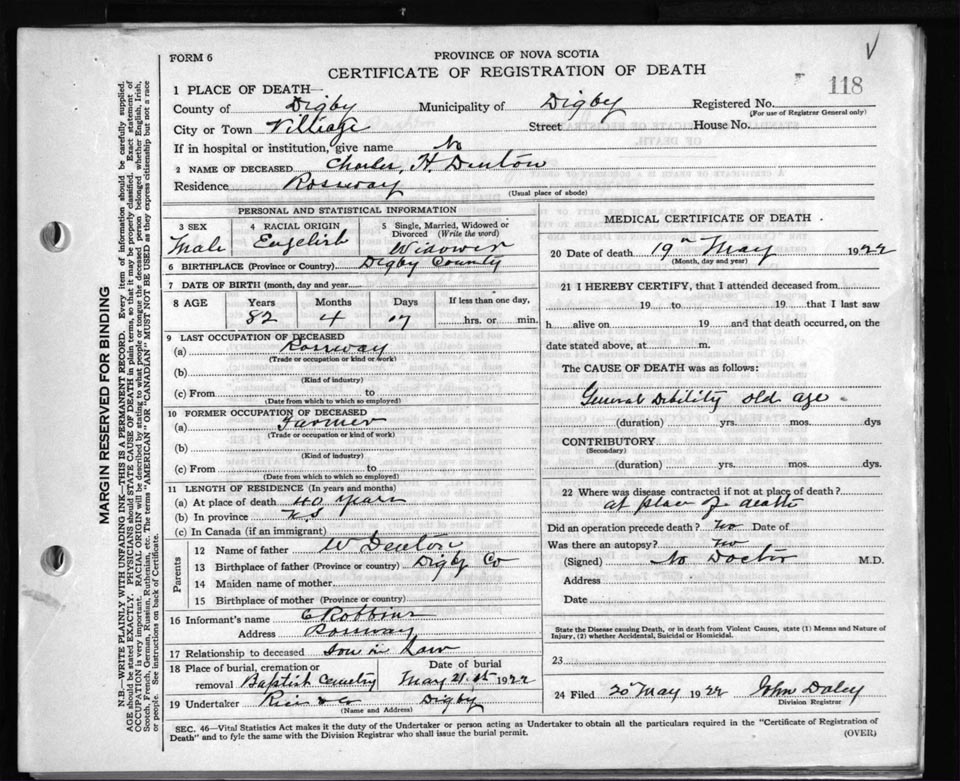 FORM 6
PROVINCE OF NOVA SCOTIA
CERTIFICATE OF REGISTRATION OF DEATH
118
1 PLACE OF DEATH
County of Digby Municipality of Digby Registered No.
(For use of Registrar General only)
City or Town Villiage Street House No.
If in hospital or institution, give name No
2 NAME OF DECEASED Charles, H. Denton
Residence Rossway
(Usual place of abode)
PERSONAL AND STATISTICAL INFORMATION
3 SEX Male
4 RACIAL ORIGIN English
5 Single, Married, Widowed or Divorced (Write the word) Widower
6 BIRTHPLACE (Province or Country) Digby County
7 DATE OF BIRTH (month, day and year)
8 AGE Years 82 Months 4 Days 17 If less than one day, hrs. or min.
9 LAST OCCUPATION OF DECEASED
(a) Rossway
(Trade or occupation or kind or work)
(b)
(Kind of industry)
(c) From to
(Date from which to which so employed)
10 FORMER OCCUPATION OF DECEASED
(a) Farmer
(Trade or occupation or kind of work)
(b)
(Kind of industry)
(c) From to
(Date from which to which so employed)
11 LENGTH OF RESIDENCE (In years and months)
(a) At place of death 40 years
(b) In province N.S
(c) In Canada (if an immigrant)
Parents
12 Name of father W Denton
13 Birthplace of father (Province or country) Digby Co
14 Maiden name of mother
15 Birthplace of mother (Province or country)
16 Informant's name C Robbins
Address Rossway
17 Relationship to deceased Son in Law
18 Place of burial, cremation or removal Baptist Cemetry Date of burial May 21st 1922
19 Undertaker Digby
(Name and Address)
MEDICAL CERTIFICATE OF DEATH
20 Date of death 19th May 1922
(Month, day and year)
21 I HEREBY CERTIFY, that I attended deceased from
19 to 19 that I last saw
h alive on 19 and that death occurred, on the
date stated above, at m.
The CAUSE OF DEATH was as follows:
General Dibility old age
(duration) yrs. mos. dys
CONTRIBUTORY
(Secondary)
(duration) yrs. mos. dys.
22 Where was disease contracted if not at place of death?
at place of death
Did an operation precede death? No Date of
Was there an autopsy? No
(Signed) No Doctor M.D.
Address
Date
State the Disease causing Death, or in death from Violent Causes, state (1) Means and Nature of
Injury, (2) whether Accidental, Suicidal or Homicidal.
23
24 Filed 20 May 1922 John Daley
Division Registrar
SEC. 46—Vital Statistics Act makes it the duty of the Undertaker or person acting as Undertaker to obtain all the particulars required in the "Certificate of Registration of
Death" and to fyle the same with the Division Registrar who shall issue the burial permit. (OVER)
MARGIN RESERVED FOR BINDING
N.B.—WRITE PLAINLY WITH UNFADING INK—THIS IS A PERMANENT RECORD. Every item of information should be carefully supplied.
AGE should be stated EXACTLY. PHYSICIANS should STATE CAUSE OF DEATH in plain terms, so that it may be properly classified. Exact statement of
OCCUPATION is very important. RACIAL ORIGIN will be described by stating to what people or tongue the deceased person belonged whether English, Irish,
Scotch, French, German, Russian, Ruthenian, etc. The terms "AMERICAN" OR "CANADIAN" MUST NOT BE USED as they express citizenship but not a race
or people. See instructions on back of Certificate.